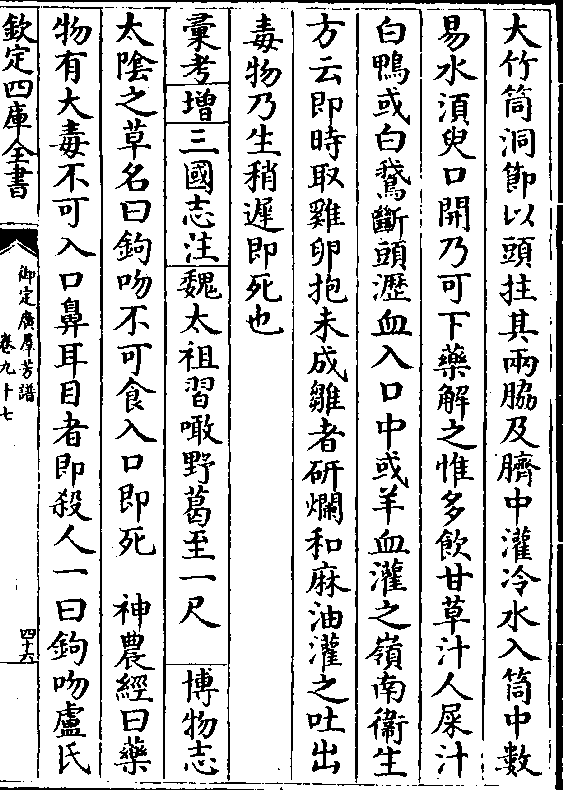 大竹筒洞節以頭拄其兩脇及臍中灌冷水入筒中數
易水湏臾口開乃可下藥解之惟多飲甘草汁人屎汁
白鴨或白鵞斷頭瀝血入口中或羊血灌之嶺南衞生
方云即時取雞卵抱未成雛者研爛和麻油灌之吐出
毒物乃生稍遲即死也
彚考增三國志注魏太祖習噉野葛至一尺 博物志
太隂之草名曰鉤吻不可食入口即死 神農經曰藥
物有大毒不可入口鼻耳目者即殺人一曰鉤吻盧氏
欽定四庫全書
御定廣羣芳譜
卷九十七
四十六